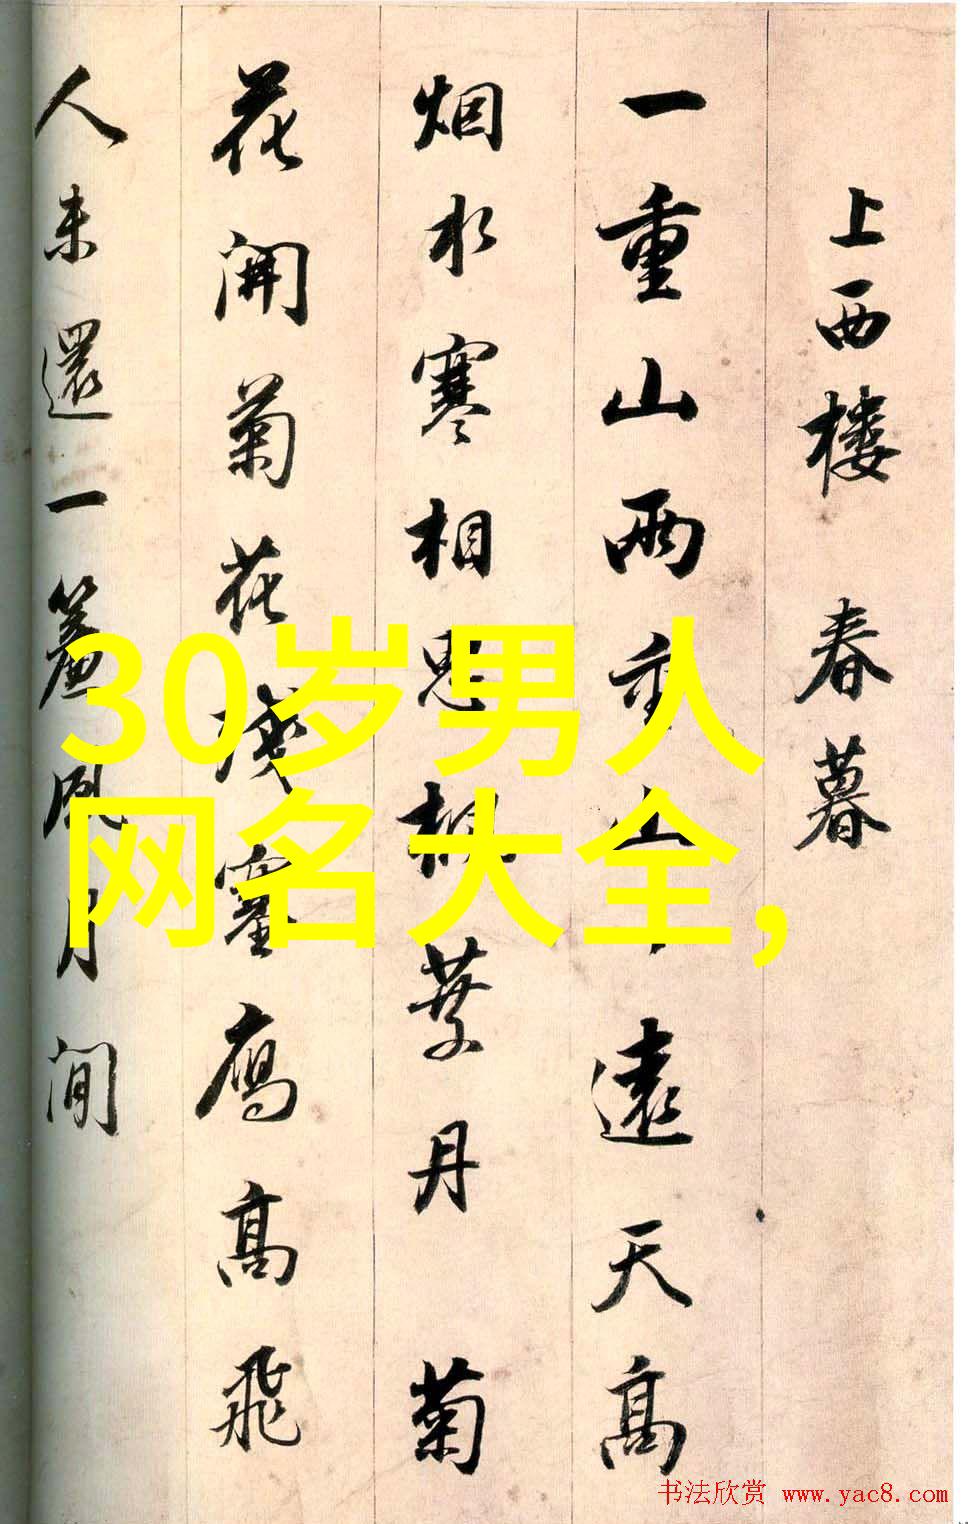 上西楼 春暮
一重山兩重山山遠天高
烟水寒相思楓葉丹 菊
花開菊花残塞鴈高飛
人未還一簾風月閒
30岁男人
网名大全,
书法欣赏 www.yac8.com